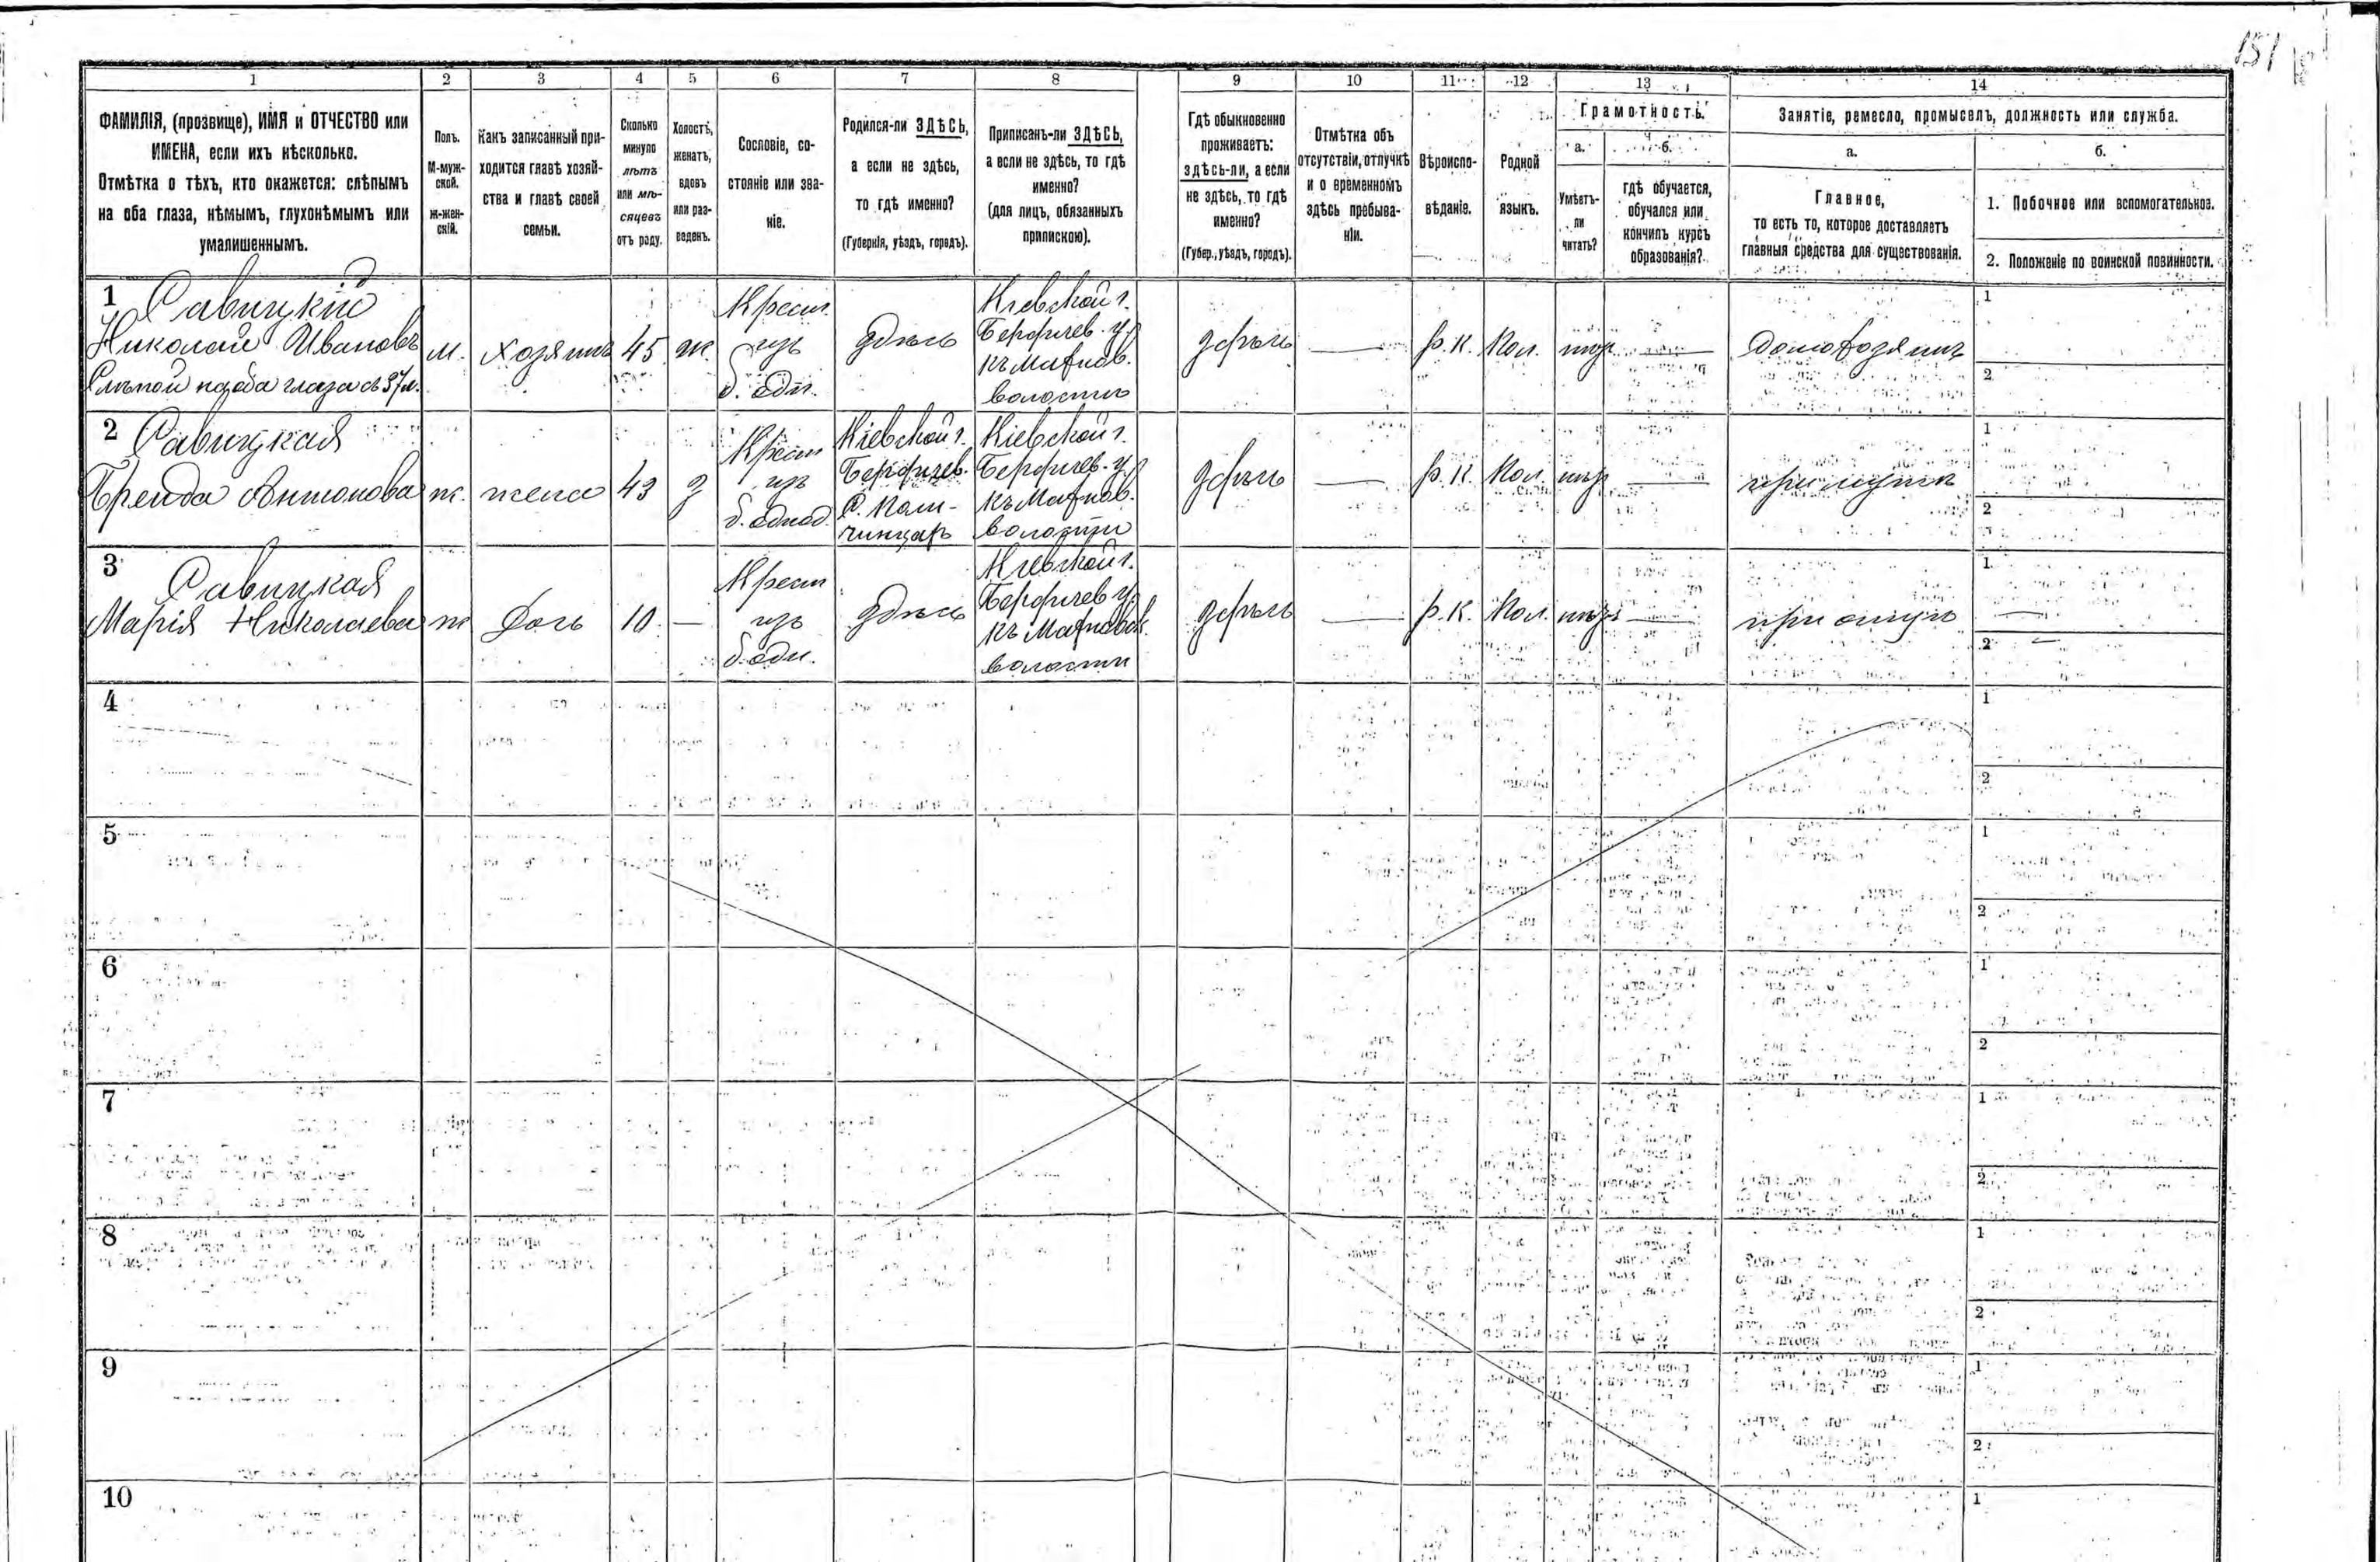 151
1 2 3 4 5 6 7 8 9 10 11 12 13 14
ФАМИЛІЯ, (прозвище), ИМЯ и ОТЧЕСТВО или
ИМЕНА, если ихъ нѣсколько.
Отмѣтка о тѣхъ, кто окажется: слѣпымъ
на оба глаза, нѣмымъ, глухонѣмымъ или
умалишеннымъ.
Полъ.
М-муж-
ской.
Ж-жен-
скій.
Какъ записанный при-
ходится главѣ хозяй-
ства и главѣ своей
семьи.
Сколько
минуло
лѣтъ
или мѣ-
сяцевъ
отъ роду.
Холостъ,
женатъ,
вдовъ
или раз-
веденъ.
Сословіе, со-
стояніе или зва-
ніе.
Родился-ли ЗДѢСЬ,
а если не здѣсь,
то гдѣ именно?
(Губернія, уѣздъ, городъ).
Приписанъ-ли ЗДѢСЬ,
а если не здѣсь, то гдѣ
именно?
(для лицъ, обязанныхъ
припискою).
Гдѣ обыкновенно
проживаетъ:
здѣсь-ли, а если
не здѣсь, то гдѣ
именно?
(Губер., уѣздъ, городъ).
Отмѣтка объ
отсутствіи, отлучкѣ
и о временномъ
здѣсь пребыва-
ніи.
Вѣроиспо-
вѣданіе.
Родной
языкъ.
Грамотность.
а.
Умѣетъ-
ли
читать?
б.
гдѣ обучается,
обучался или
кончилъ курсъ
образованія?
Занятіе, ремесло, промыселъ, должность или служба.
а.
Главное,
то есть то, которое доставляетъ
главныя средства для существованія.
б.
1. Побочное или вспомогательное.
2. Положеніе по воинской повинности.
1
Савицкій
Николай Ивановъ
Слѣпой на оба глаза съ 37 л.
м.
хозяинъ
45
ж.
Крест.
изъ
б. одн.
здѣсь
Кіевской г.
Бердичев. у.
къ Махнов.
волости
здѣсь
р. К.
Пол.
нѣт
домохозяинъ
1
2
2
Савицкая
Антонова
ж.
жена
43
з
Крест
изъ
б. однод.
Кіевской г.
Бердичев.
Кіевской г.
Бердичев. у.
къ Махнов.
волости
здѣсь
р. К.
Пол.
нѣт
при мужѣ
1
2
3
Савицкая
Марія Николаева
ж
дочь
10
Крест
изъ
б. одн.
здѣсь
Кіевской г.
Бердичев у.
къ Махновск.
волости
здѣсь
р. К.
Пол.
нѣт
при отцѣ
1
2
4
1
2
5
1
2
6
1
2
7
1
2
8
1
2
9
1
2
10
1